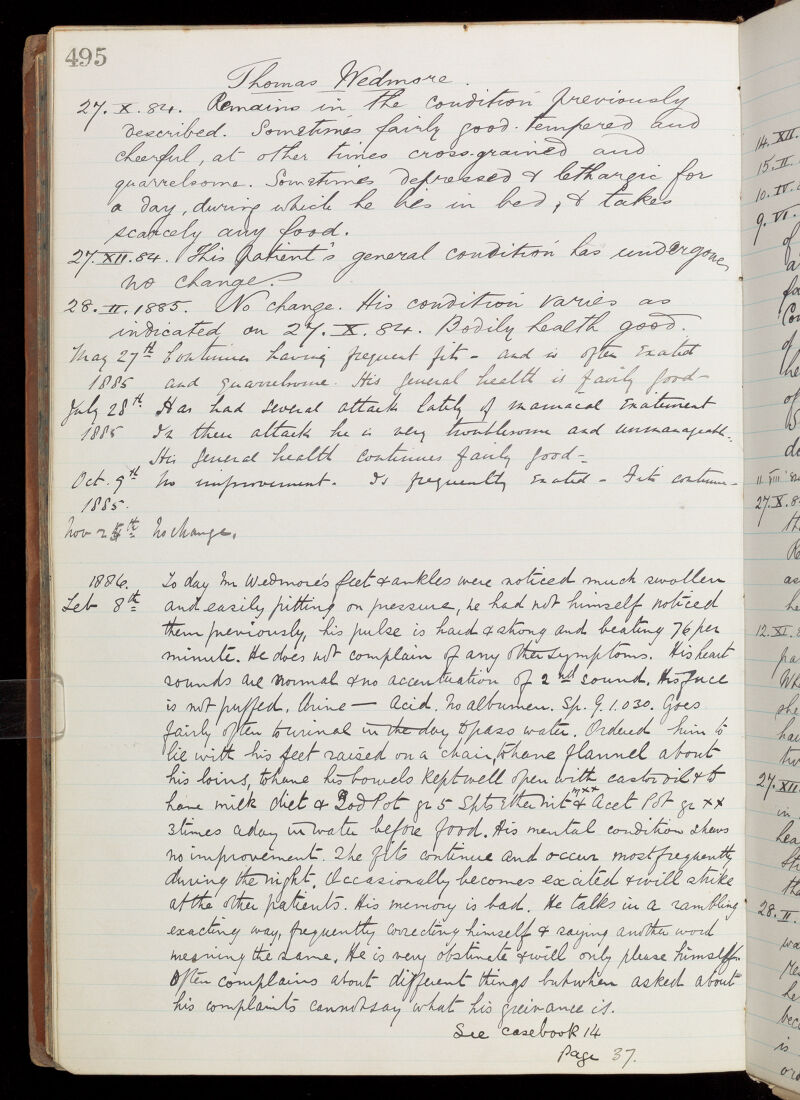 495
Thomas Wedmore.
27. X. 84. Remains in the condition previously
described. Sometimes fairly good-tempered and
cheerful, at other times cross-grained and
quarrelsome. Sometimes depressed & lethargic for
a day, during which he lies in bed, & takes
scarcely any food.
27. XII. 84. This patient's general condition has undergone
no change.
28. II. 1885. No change. His condition varies as
indicated on 27. X. 84. Bodily health good.
May 27th Continues having frequent fits - and is often excited
1885 and quarrelsome. His general health is fairly good-
July 28th Has had several attacks lately of maniacal excitement
1885 In these attacks he is very troublesome and unmanageable.
His general health continues fairly good-
Oct. 9th No improvement. Is frequently excited - Fits continue-
1885.
Nov 25th No change.
1886. To day Mr Wedmore's feet & ankles were noticed much swollen
Feb 8th and easily pitting on pressure, he had not himself noticed
them previously, his pulse is hard & strong and beating 76 per
minute. He does not complain of any other symptoms. His heart
sounds are normal & no accentuation of 2nd sound. His face
is not puffed. Urine - Acid. No albumen. Sp. G. 1.030. Goes
fairly often to urinal in the day to pass water. Ordered him to
lie with his feet raised on a chair, to have flannel about
his loins, to have his bowels kept well open with castor oil & to
have milk diet & Iod Pot gr 5 Spts Ether Nit mxx & Acet Pot gr xx
3 times a day in water before food. His mental condition shews
no improvement. The fits continue and occur most frequently
during the night. Occasionally becomes excited & will strike
at the other patients. His memory is bad. He talks in a rambling
exacting way, frequently correcting himself & saying another word
meaning the same. He is very obstinate & will only please himself.
Often complains about different things but when asked about
his complaints cannot say what his greivance is.
See casebook 14
Page 37.
14. XII.
15. II.
10. IV.
9. VI.
27. X. 8
12. XI. 8
27. XII
28. II.